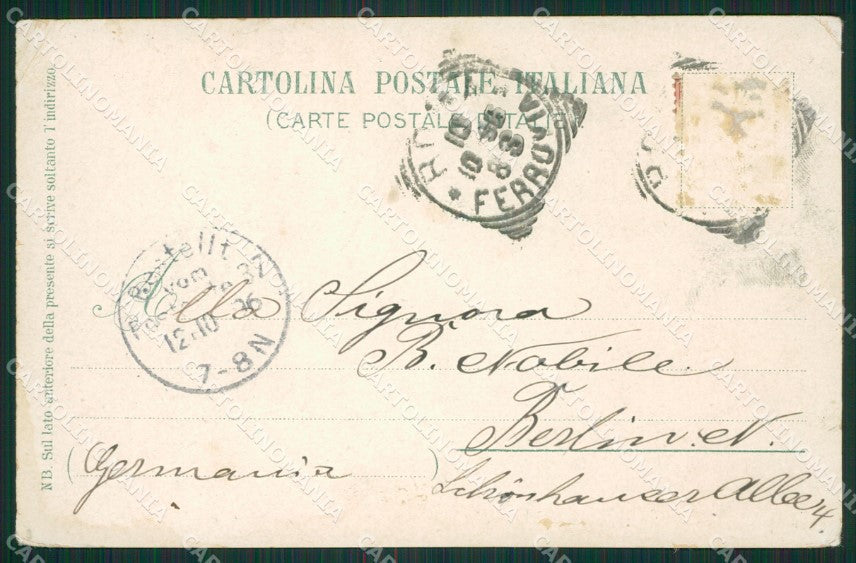 CARTOLINA POSTALE ITALIANA
(CARTE POSTALE D'ITALIE)
FERROVIA
Alla Signora
B. Nobile
Berlin. N.
Schönhauser Allee 4.
(Germania)
Bestellt
vom
Postamte
12.10 96
7-8N
NB. Sul lato anteriore della presente si scrive soltanto l'indirizzo.
CARTOLINOMANIA